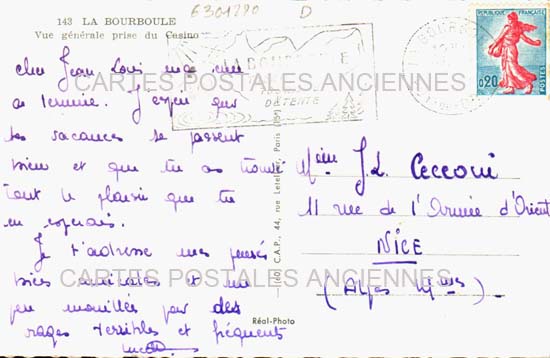 6301290 D
143 LA BOURBOULE
Vue générale prise du Casino
cher Jean Loui ma cure
se termine. J'espère que
tes vacances se passent
bien et que tu as trouvé
tout le plaisir que tu
en espérais.
Je t'adresse mes pensées
bien amicales et un
peu mouillées par des
orages terribles et fréquents
Réal-Photo
(40) C.A.P., 44, rue Letellier, Paris (15e)
LA BOURBOULE
DÉTENTE
REPUBLIQUE FRANÇAISE
0,20
POSTES
J.L. Cecconi
11 rue de l'Armée d'Orient
NICE
(Alpes Mmes)
CARTES POSTALES ANCIENNES
CARTES POSTALES ANCIENNES